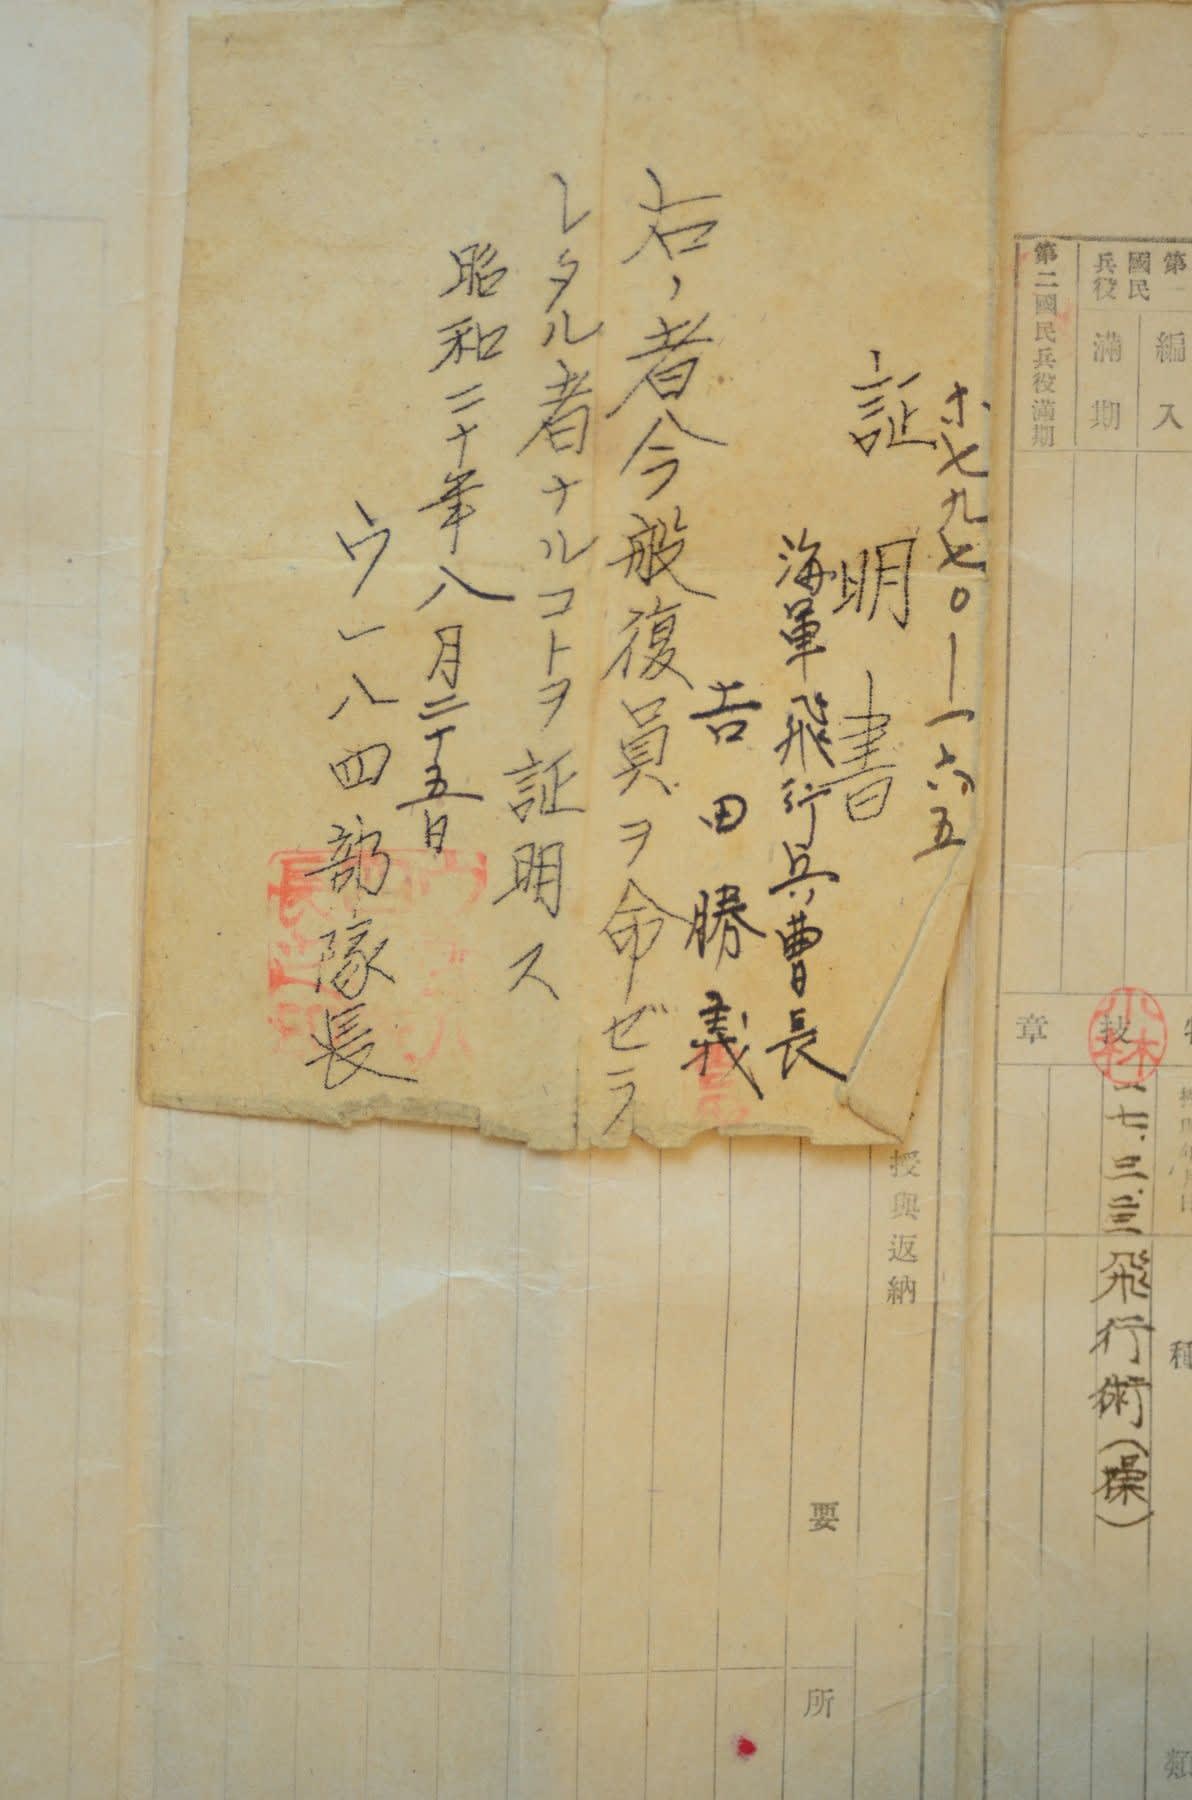 第一
國民
兵役
編入
滿期
第二國民兵役滿期
章
技
小林
一七、三、三三
飛行術(操)
種
類
証明書
海軍飛行兵曹長
吉田勝義
右ノ者今般復員ヲ命ゼラ
レタル者ナルコトヲ証明ス
昭和二十年八月二十五日
ウ一八四部隊長
授與返納
要
所